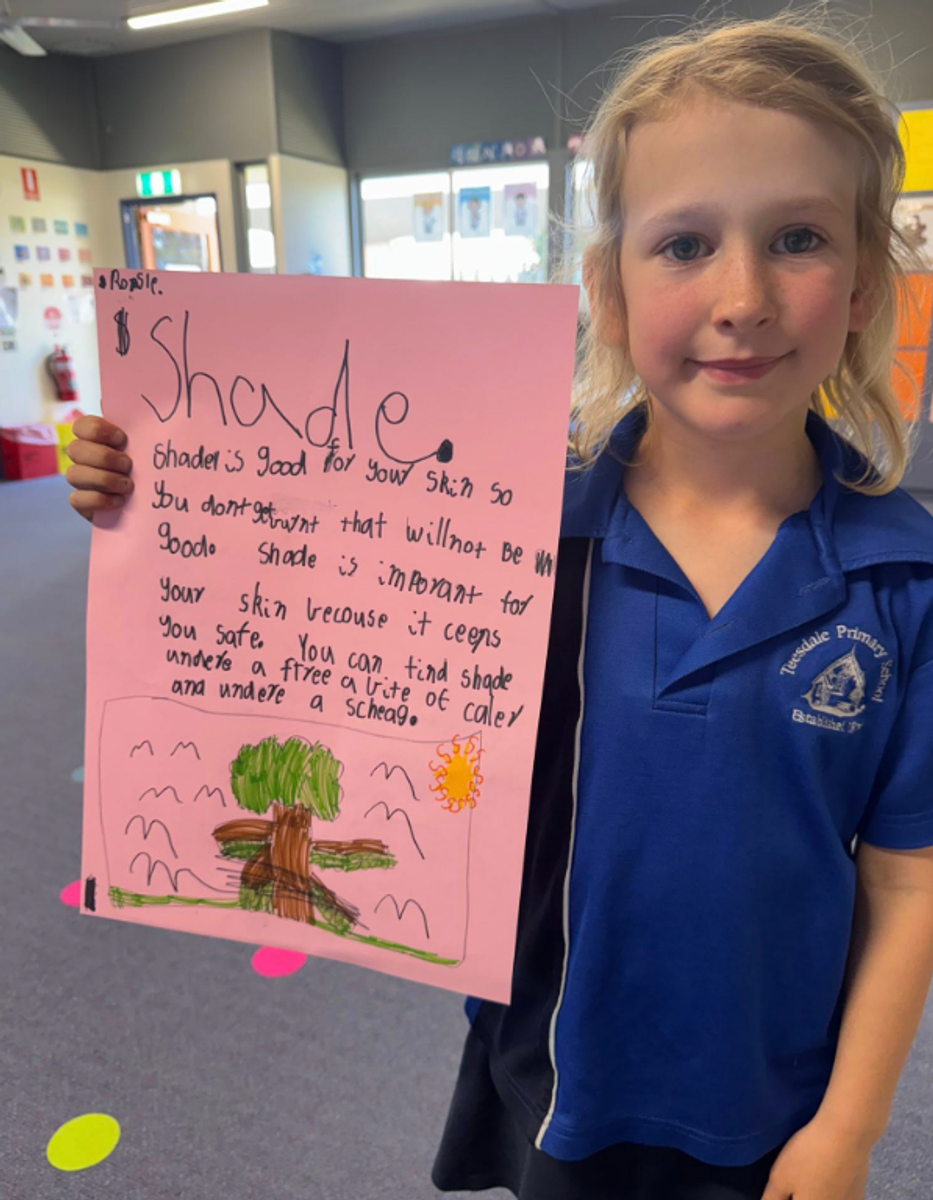 Shade.
Shade is good for your skin so
you dont get burnt that will not be
good. Shade is imporant for
your skin becouse it ceeps
you safe. You can find shade
undere a ftree a bite of caler
and undere a scheag.
Teesdale Primary School
Established